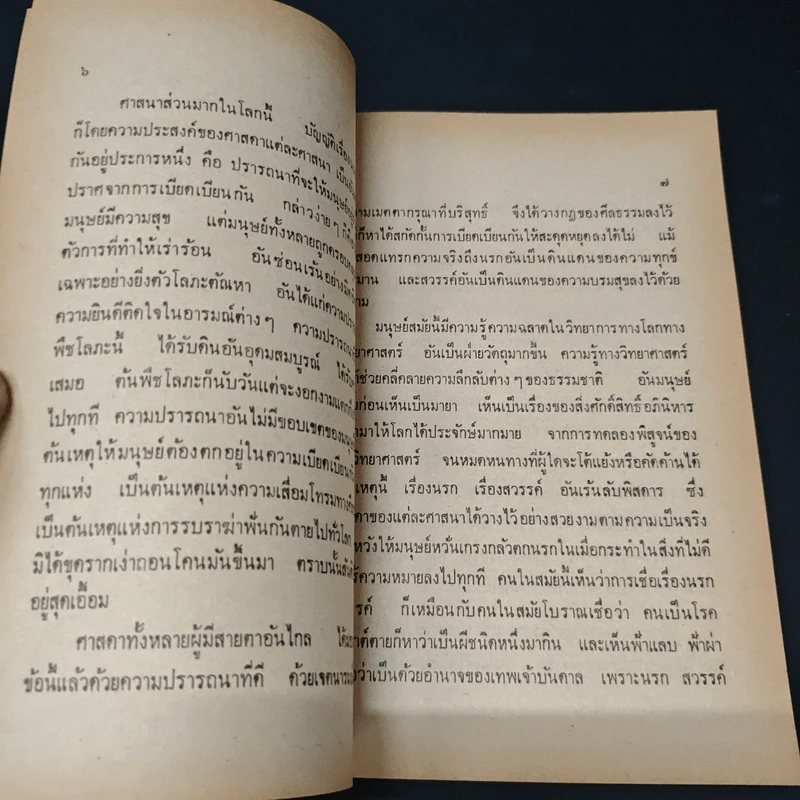 ๖
ศาสนาส่วนมากในโลกนี้ บัญญัติเรื่อง
ก็โดยความประสงค์ของศาสดาแต่ละศาสนา
กันอยู่ประการหนึ่ง คือ ปรารถนาที่จะให้มนุษย์
ปราศจากการเบียดเบียนกัน กล่าวง่ายๆ ก็
มนุษย์มีความสุข แต่มนุษย์ทั้งหลายถูกครอบ
ตัวการที่ทำให้เร่าร้อน อันซ่อนเร้นอย่าง
เฉพาะอย่างยิ่งตัวโลภะตัณหา อันได้แก่ความ
ความยินดีติดใจในอารมณ์ต่างๆ ความปรารถนา
พืชโลภะนี้ ได้รับดินอันอุดมสมบูรณ์ ได้
เสมอ ต้นพืชโลภะก็นับวันแต่จะงอกงาม
ไปทุกที ความปรารถนาอันไม่มีขอบเขตของ
ต้นเหตุให้มนุษย์ต้องตกอยู่ในความเบียดเบียน
ทุกแห่ง เป็นต้นเหตุแห่งความเสื่อมโทรมทาง
เป็นต้นเหตุแห่งการรบราฆ่าฟันกันตายไปทั่วโลก
มิได้ขุดรากเง่าถอนโคนมันขึ้นมา ตราบนั้น
อยู่สุดเอื้อม
ศาสดาทั้งหลายผู้มีสายตาอันไกล ได้
ข้อนี้แล้วด้วยความปรารถนาที่ดี ด้วยเจตนา
๗
ามเมตตากรุณาที่บริสุทธิ์ จึงได้วางกฎของศีลธรรมลงไว้
ก็หาได้สกัดกั้นการเบียดเบียนกันให้สะดุดหยุดลงได้ไม่ แม้
สอดแทรกความจริงถึงนรกอันเป็นดินแดนของความทุกข์
มาน และสวรรค์อันเป็นดินแดนของความบรมสุขลงไว้ด้วย
าม
มนุษย์สมัยนี้มีความรู้ความฉลาดในวิทยาการทางโลกทาง
ยาศาสตร์ อันเป็นฝ่ายวัตถุมากขึ้น ความรู้ทางวิทยาศาสตร์
ได้ช่วยคลี่คลายความลึกลับต่างๆ ของธรรมชาติ อันมนุษย์
งก่อนเห็นเป็นมายา เห็นเป็นเรื่องของสิ่งศักดิ์สิทธิ์อภินิหาร
มาให้โลกได้ประจักษ์มากมาย จากการทดลองพิสูจน์ของ
วิทยาศาสตร์ จนหมดหนทางที่ผู้ใดจะโต้แย้งหรือคัดค้านได้
เหตุนี้ เรื่องนรก เรื่องสวรรค์ อันเร้นลับพิสดาร ซึ่ง
ดาของแต่ละศาสนาได้วางไว้อย่างสวยงามตามความเป็นจริง
หวังให้มนุษย์หวั่นเกรงกลัวตกนรกในเมื่อกระทำในสิ่งที่ไม่ดี
ร้ความหมายลงไปทุกที คนในสมัยนี้เห็นว่าการเชื่อเรื่องนรก
รค์ ก็เหมือนกับคนในสมัยโบราณเชื่อว่า คนเป็นโรค
าต์ตายก็หาว่าเป็นผีชนิดหนึ่งมากิน และเห็นฟ้าแลบ ฟ้าผ่า
ว่าเป็นด้วยอำนาจของเทพเจ้าบันดาล เพราะนรก สวรรค์